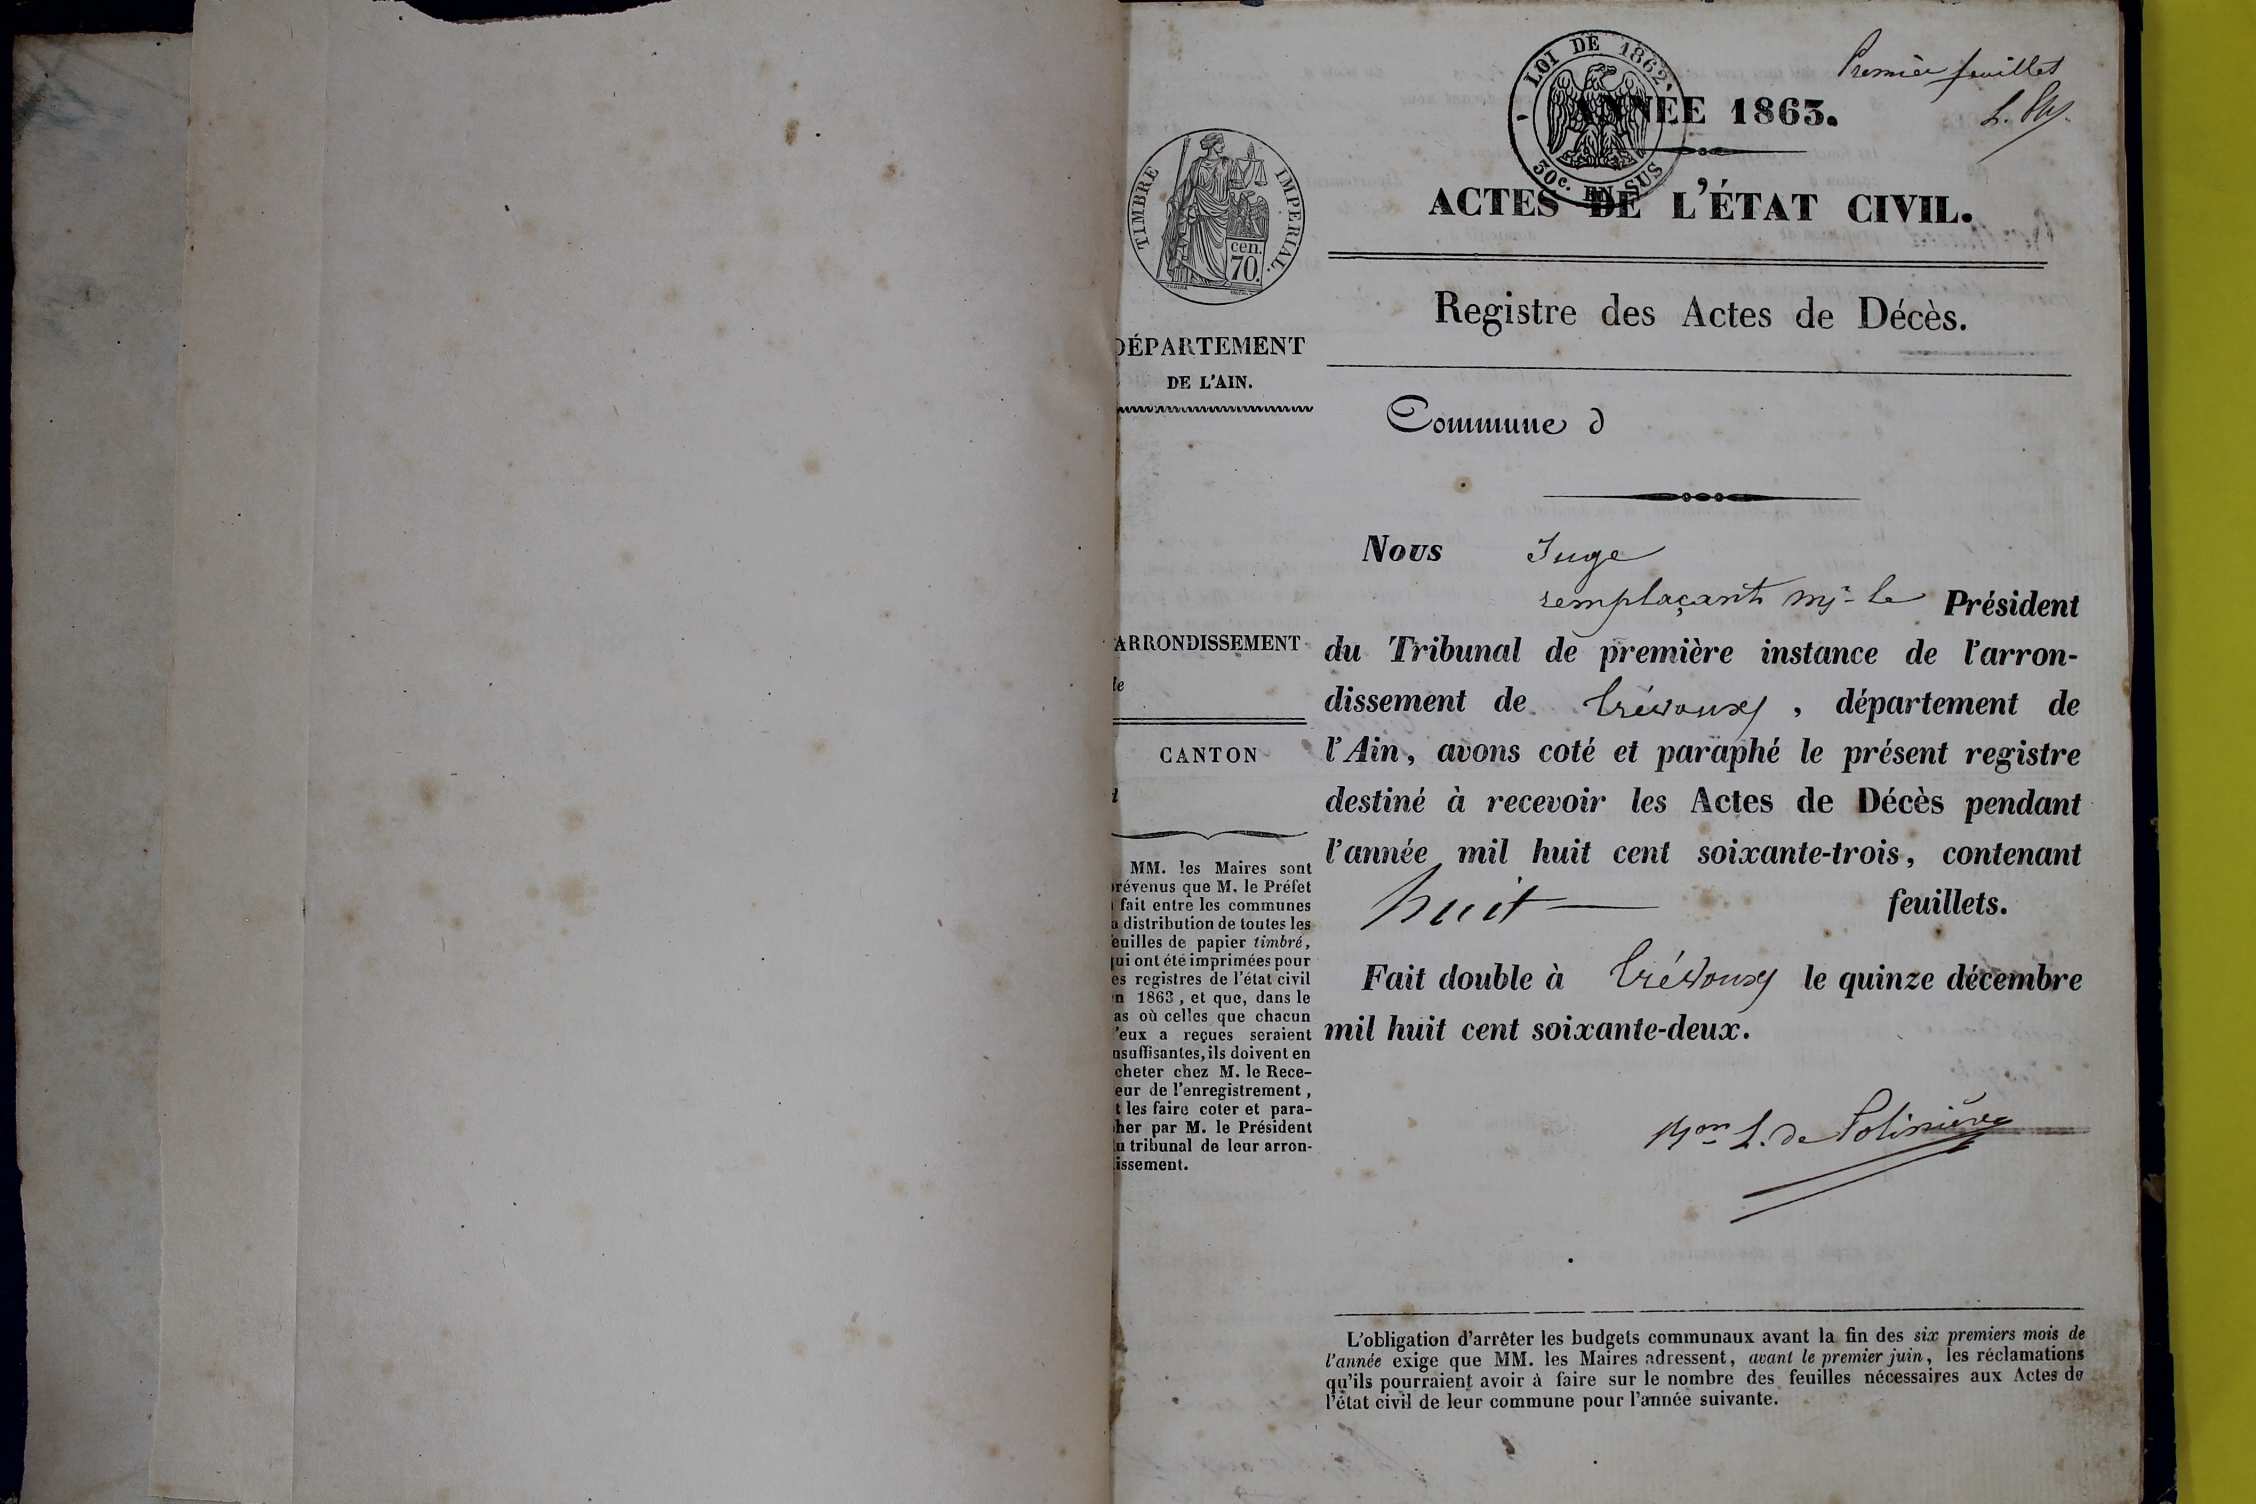 Premier feuillet
LOI DE 1862.
30c. EN SUS
ANNÉE 1863.
TIMBRE IMPERIAL.
cen.
70.
ACTES DE L'ÉTAT CIVIL.
Registre des Actes de Décès.
DÉPARTEMENT
DE L'AIN.
Commune d
Nous Juge
remplaçant Mr le Président
ARRONDISSEMENT
du Tribunal de première instance de l'arron-
dissement de Trévoux, département de
CANTON
l'Ain, avons coté et paraphé le présent registre
destiné à recevoir les Actes de Décès pendant
l'année mil huit cent soixante-trois, contenant
huit feuillets.
Fait double à Trévoux le quinze décembre
mil huit cent soixante-deux.
MM. les Maires sont
révenus que M. le Préfet
fait entre les communes
a distribution de toutes les
euilles de papier timbré,
ui ont été imprimées pour
es registres de l'état civil
n 1863, et que, dans le
as où celles que chacun
'eux a reçues seraient
nsuffisantes, ils doivent en
cheter chez M. le Rece-
eur de l'enregistrement,
t les faire coter et para-
her par M. le Président
u tribunal de leur arron-
issement.
L. de Polinière
L'obligation d'arrêter les budgets communaux avant la fin des six premiers mois de
l'année exige que MM. les Maires adressent, avant le premier juin, les réclamations
qu'ils pourraient avoir à faire sur le nombre des feuilles nécessaires aux Actes de
l'état civil de leur commune pour l'année suivante.